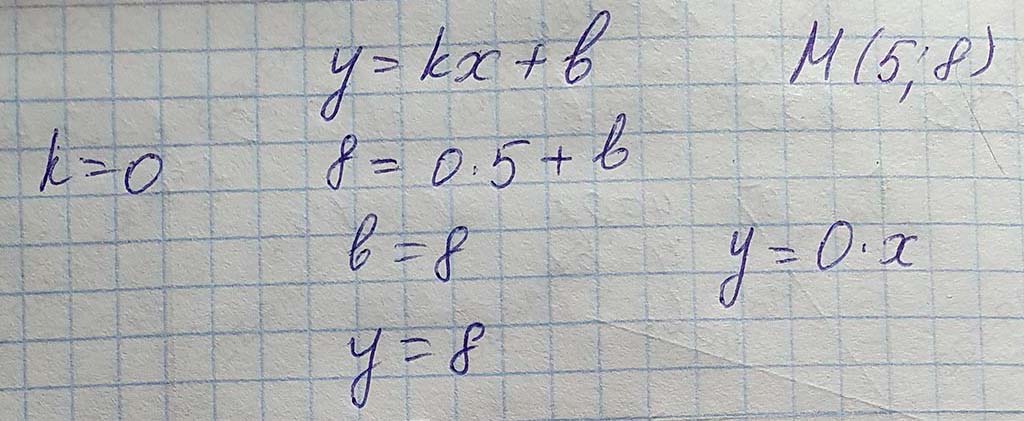 y = kx + b M (5; 8)
k = 0 8 = 0 · 5 + b
b = 8 y = 0 · x
y = 8